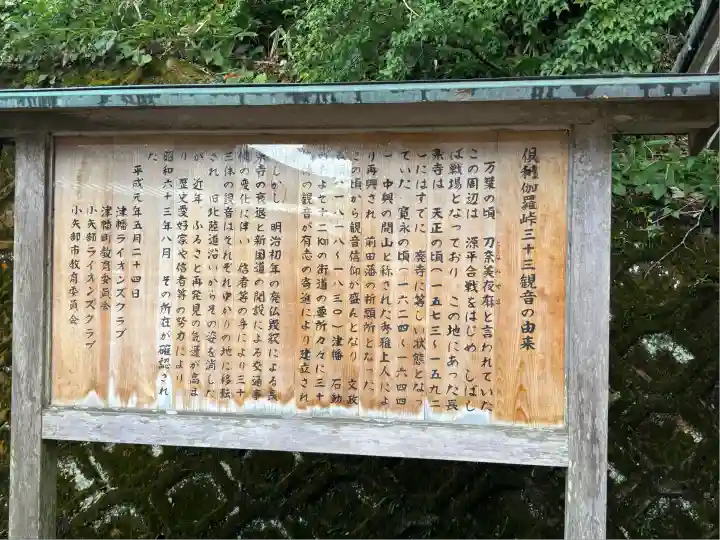 倶利伽羅峠三十三観音の由来
万葉の頃 刀奈美夜麻と言われていた
この周辺は 源平合戦をはじめ しばし
ば戦場となっており この地にあった長
楽寺は 天正の頃(一五七三〜一五九二
)にはすでに 廃寺に等しい状態となっ
ていた 寛永の頃(一六二四〜一六四四
) 中興の開山と称された秀雅上人によ
り再興され 前田藩の祈願所となった
この頃から観音信仰が盛んとなり 文政
(一八一八〜一八三〇)津幡 石動
よそ十二kmの街道の要所々々に三十
の観音が有志の寄進により建立され
しかし 明治初年の廃仏毀釈による長
楽寺の衰退と新国道の開設による交通事
情の変化に伴い 信者等の手により三十
三体の観音はそれぞれゆかりの地に移転
され 旧北陸道沿いからその姿を消した
が 近年 ふるさと再発見の気運が高ま
り 歴史愛好家や信者等の努力により
昭和六十三年八月 その所在が確認され
た
平成元年五月二十四日
津幡ライオンズクラブ
津幡町教育委員会
小矢部ライオンズクラブ
小矢部市教育委員会